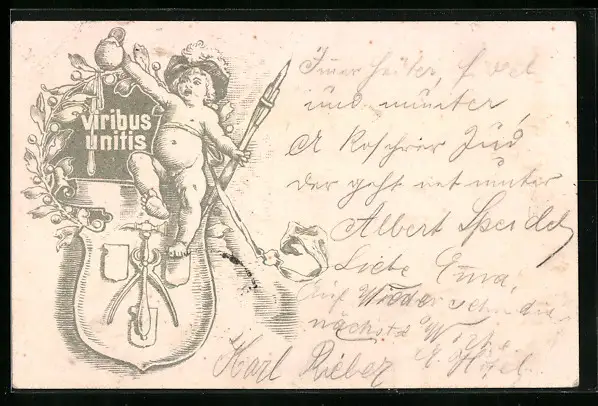 viribus
unitis
Imer heiter, fidel
und munter,
A koschrer Jud,
der geht net unter
Albert Speidel
Liebe Emma,
Auf Wiedersehn die
nächste Woche.
Karl Rieber